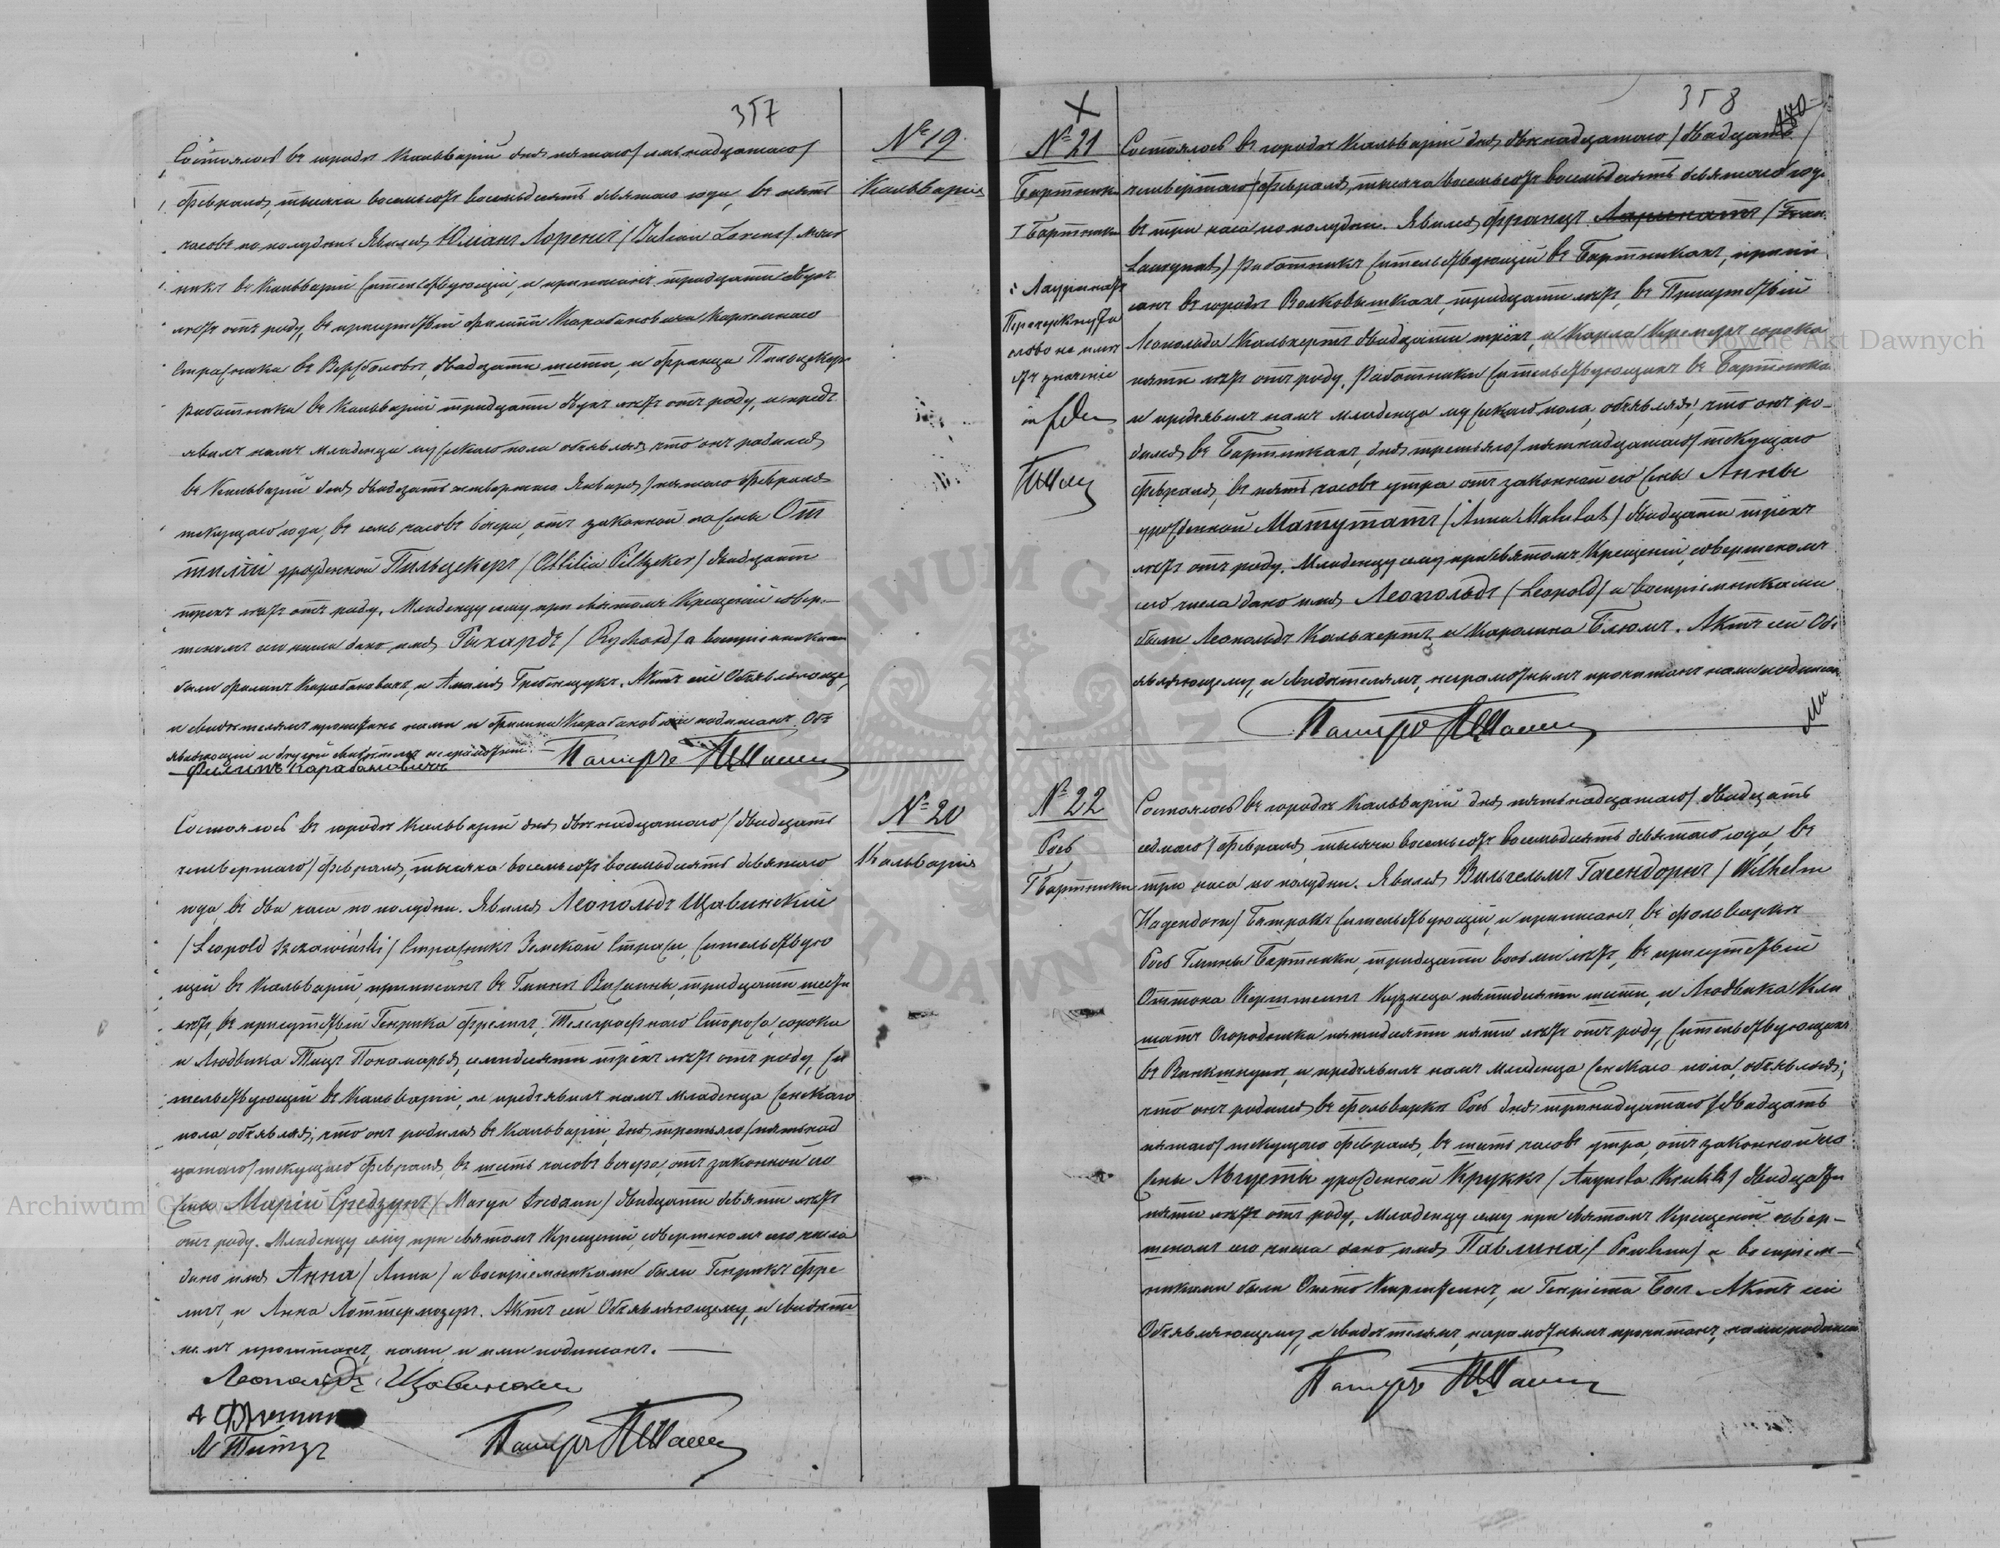 357
№ 19.
Кальварія
Состоялось въ городѣ Кальваріи дня пятаго/семьнадцатаго/
Февраля, тысяча восемьсотъ восемьдесятъ девятаго года, въ пять
часовъ по полудни. Явился Юліанъ Лоренцъ /Julian Lorenz/
въ Кальваріи жительствующій, и приписанъ, тридцати двухъ
лѣтъ отъ роду, въ присутствіи Филиппа Карабановича
Стражника въ Вержболовѣ, двадцати шести, и Франца Пильцекеръ
работника въ Кальваріи тридцати двухъ лѣтъ отъ роду, и предъ
явилъ намъ младенца мужескаго пола объявляя, что онъ родился
въ Кальваріи дня двадцать четвертаго Января/пятаго Февраля
текущаго года, въ семь часовъ вечера, отъ законной его жены От
тиліи урожденной Пильцекеръ /Ottilia Piltzeker/ двадцати
трехъ лѣтъ отъ роду. Младенцу сему при Святомъ Крещеніи совер-
шеномъ сего числа дано имя Рихардъ /Rychard/ а воспріемниками
были Филипъ Карабановичъ, и Амалія. Актъ сей Объявляющему,
и свидѣтелямъ прочитанъ нами и Филипомъ Карабановичемъ подписанъ. Объ
являющій и другой свидѣтель неграмотны.
Филипъ Карабановичъ Пасторъ
№ 20
Кальварія
Состоялось въ городѣ Кальваріи дня двѣнадцатаго/двадцать
четвертаго/Февраля, тысяча восемьсотъ восемьдесятъ девятаго
года, въ два часа по полудни. Явился Леопольдъ Щавинскій
/Leopold Szczawiński/ Стражникъ Земской Стражи, жительствую
щій въ Кальваріи, приписанъ въ Гминѣ, тридцати шести
лѣтъ, въ присутствіи Генрика Фрелихъ, Телеграфнаго Сторожа, сорока
и Людвика Тицъ Пономаря, семидесяти трехъ лѣтъ отъ роду, жи
тельствующій въ Кальваріи, и предъявилъ намъ младенца женскаго
пола, объявляя, что онъ родился въ Кальваріи, дня третьяго/пятьнад
цатаго/текущаго Февраля, въ шесть часовъ вечера, отъ законной его
жены Маріи Средзунъ /Marya Sredzun/ двадцати девяти лѣтъ
отъ роду. Младенцу сему при святомъ Крещеніи, совершеномъ сего числа
дано имя Анна /Anna/ а воспріемниками были Генрикъ Фре
лихъ, и Анна Лоттермозеръ. Актъ сей Объявляющему, и свидѣте
лямъ прочитанъ, нами и ими подписанъ.
Леопольдъ Щавинскій
Л Титзъ Пасторъ
358
№ 21
Бартники
Г Бартники
Лауринатъ
Перечеркнутое
слово не имѣ
етъ значенія
Состоялось въ городѣ Кальваріи дня двѣнадцатаго/двадцать
четвертаго/Февраля, тысяча восемьсотъ восемьдесятъ девятаго года
въ три часа по полудни. Явился Францъ /Fran.
Laurynat/ работникъ жительствующій въ Бартникахъ, припи
санъ въ городѣ Волковышкахъ, тридцати лѣтъ, въ Присутствіи
Леопольда Кальхертъ двадцати трехъ, и Карла Кремеръ сорока
пяти лѣтъ отъ роду, работники жительствующихъ въ Бартникахъ
и предъявилъ намъ младенца мужескаго пола, объявляя, что онъ ро-
дился въ Бартникахъ, дня третьяго/пятнадцатаго/текущаго
Февраля, въ пять часовъ утра отъ законной его жены Анны
урожденной Матутатъ /Anna Matutat/ двадцати трехъ
лѣтъ отъ роду. Младенцу сему при святомъ Крещеніи, совершеномъ
сего числа дано имя Леопольдъ /Leopold/ а воспріемниками
были Леопольдъ Кальхертъ, и Каролина Блюмъ. Актъ сей Объ
являющему, и свидѣтелямъ, неграмотнымъ прочитанъ нами подписанъ.
Пасторъ
№ 22
Рось
Г Бартники
Состоялось въ городѣ Кальваріи дня пятьнадцатаго/двадцать
седмаго/Февраля, тысяча восемьсотъ восемьдесятъ девятаго года, въ
три часа по полудни. Явился Вильгельмъ Гагендорнъ /Wilhelm
Hagendorn/ Батракъ жительствующій, и приписанъ, въ фольваркѣ
Рось Гмины Бартники, тридцати восьми лѣтъ, въ присутствіи
Оттона Кирштейнъ Кузнеца пятидесяти шести, и Людвика Кли
матъ Огородника пятидесяти пяти лѣтъ отъ роду, жительствующихъ
въ, и предъявилъ намъ младенца женскаго пола, объявляя,
что онъ родился въ фольваркѣ Рось дня тринадцатаго/двадцать
пятаго/текущаго Февраля, въ шесть часовъ утра, отъ законной его
жены Августы урожденной Круккъ /Augusta Krukk/ двадцати
пяти лѣтъ отъ роду. Младенцу сему при святомъ Крещеніи совер-
шеномъ сего числа дано имя Павлина / а воспріем-
никами были Отто Кирштейнъ, и Генріета. Актъ сей
Объявляющему, и свидѣтелямъ, неграмотнымъ прочитанъ, нами подписанъ
Пасторъ
Archiwum Główne Akt Dawnych
Archiwum Główne Akt Dawnych